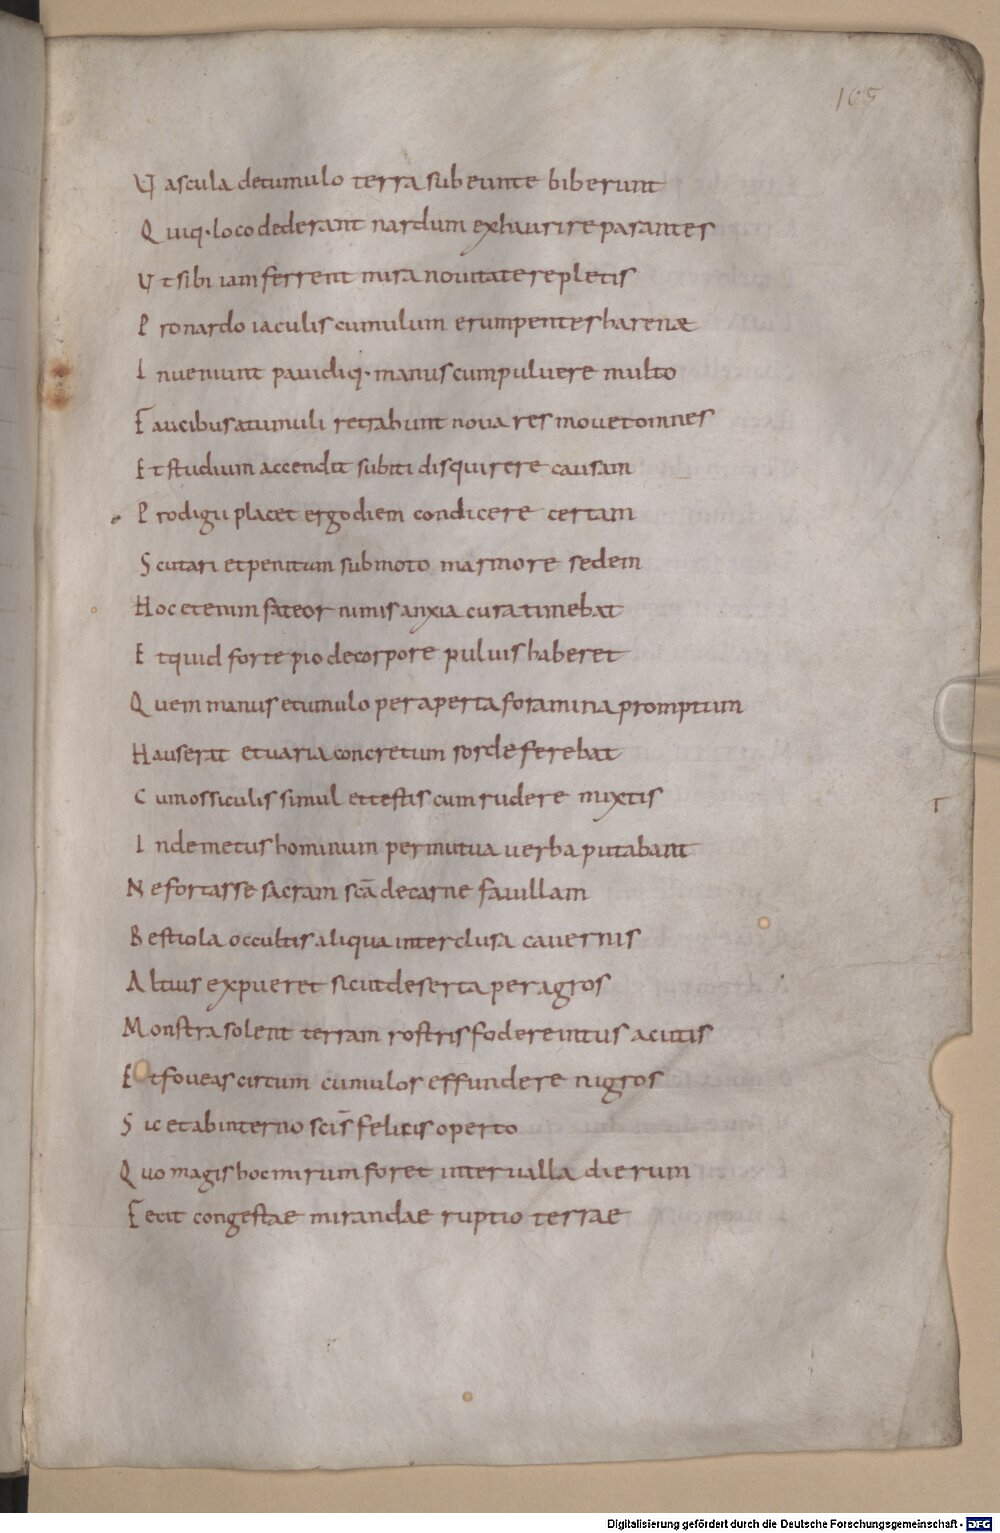 105
Vascula de tumulo terra subeunte biberunt
Quiq· loco dederant nardum exhaurire parantes
Vt sibi iam ferrent mira nouitate repletis
Pro nardo iaculis cumulum erumpentes harenae
Inueniunt pauidiq· manus cum puluere multo
Faucibus a tumuli retrahunt noua res mouet omnes
Et studium accendit subiti disquirere causam
Prodigii placet ergo diem condicere certam
Scutari et penitum submoto marmore sedem
Hoc etenim fateor nimis anxia cura timebat
Et quid forte pio de corpore puluis haberet
Quem manus e tumulo per aperta foramina promptum
Hauserat et uaria concretum sorde ferebat
Cum ossiculis simul et testis cum rudere mixtis
Inde metus hominum per mutua uerba putabant
Ne fortasse sacram scā de carne fauillam
Bestiola occultis aliqua interclusa cauernis
Altius expueret sicut deserta per agros
Monstra solent terram rostris fodere intus acutis
Et foueas circum cumulos effundere nigros
Sic et ab interno scīs felicis operto
Quo magis hoc mirum foret interualla dierum
Fecit congestae mirandae ruptio terrae
Digitalisierung gefördert durch die Deutsche Forschungsgemeinschaft - DFG